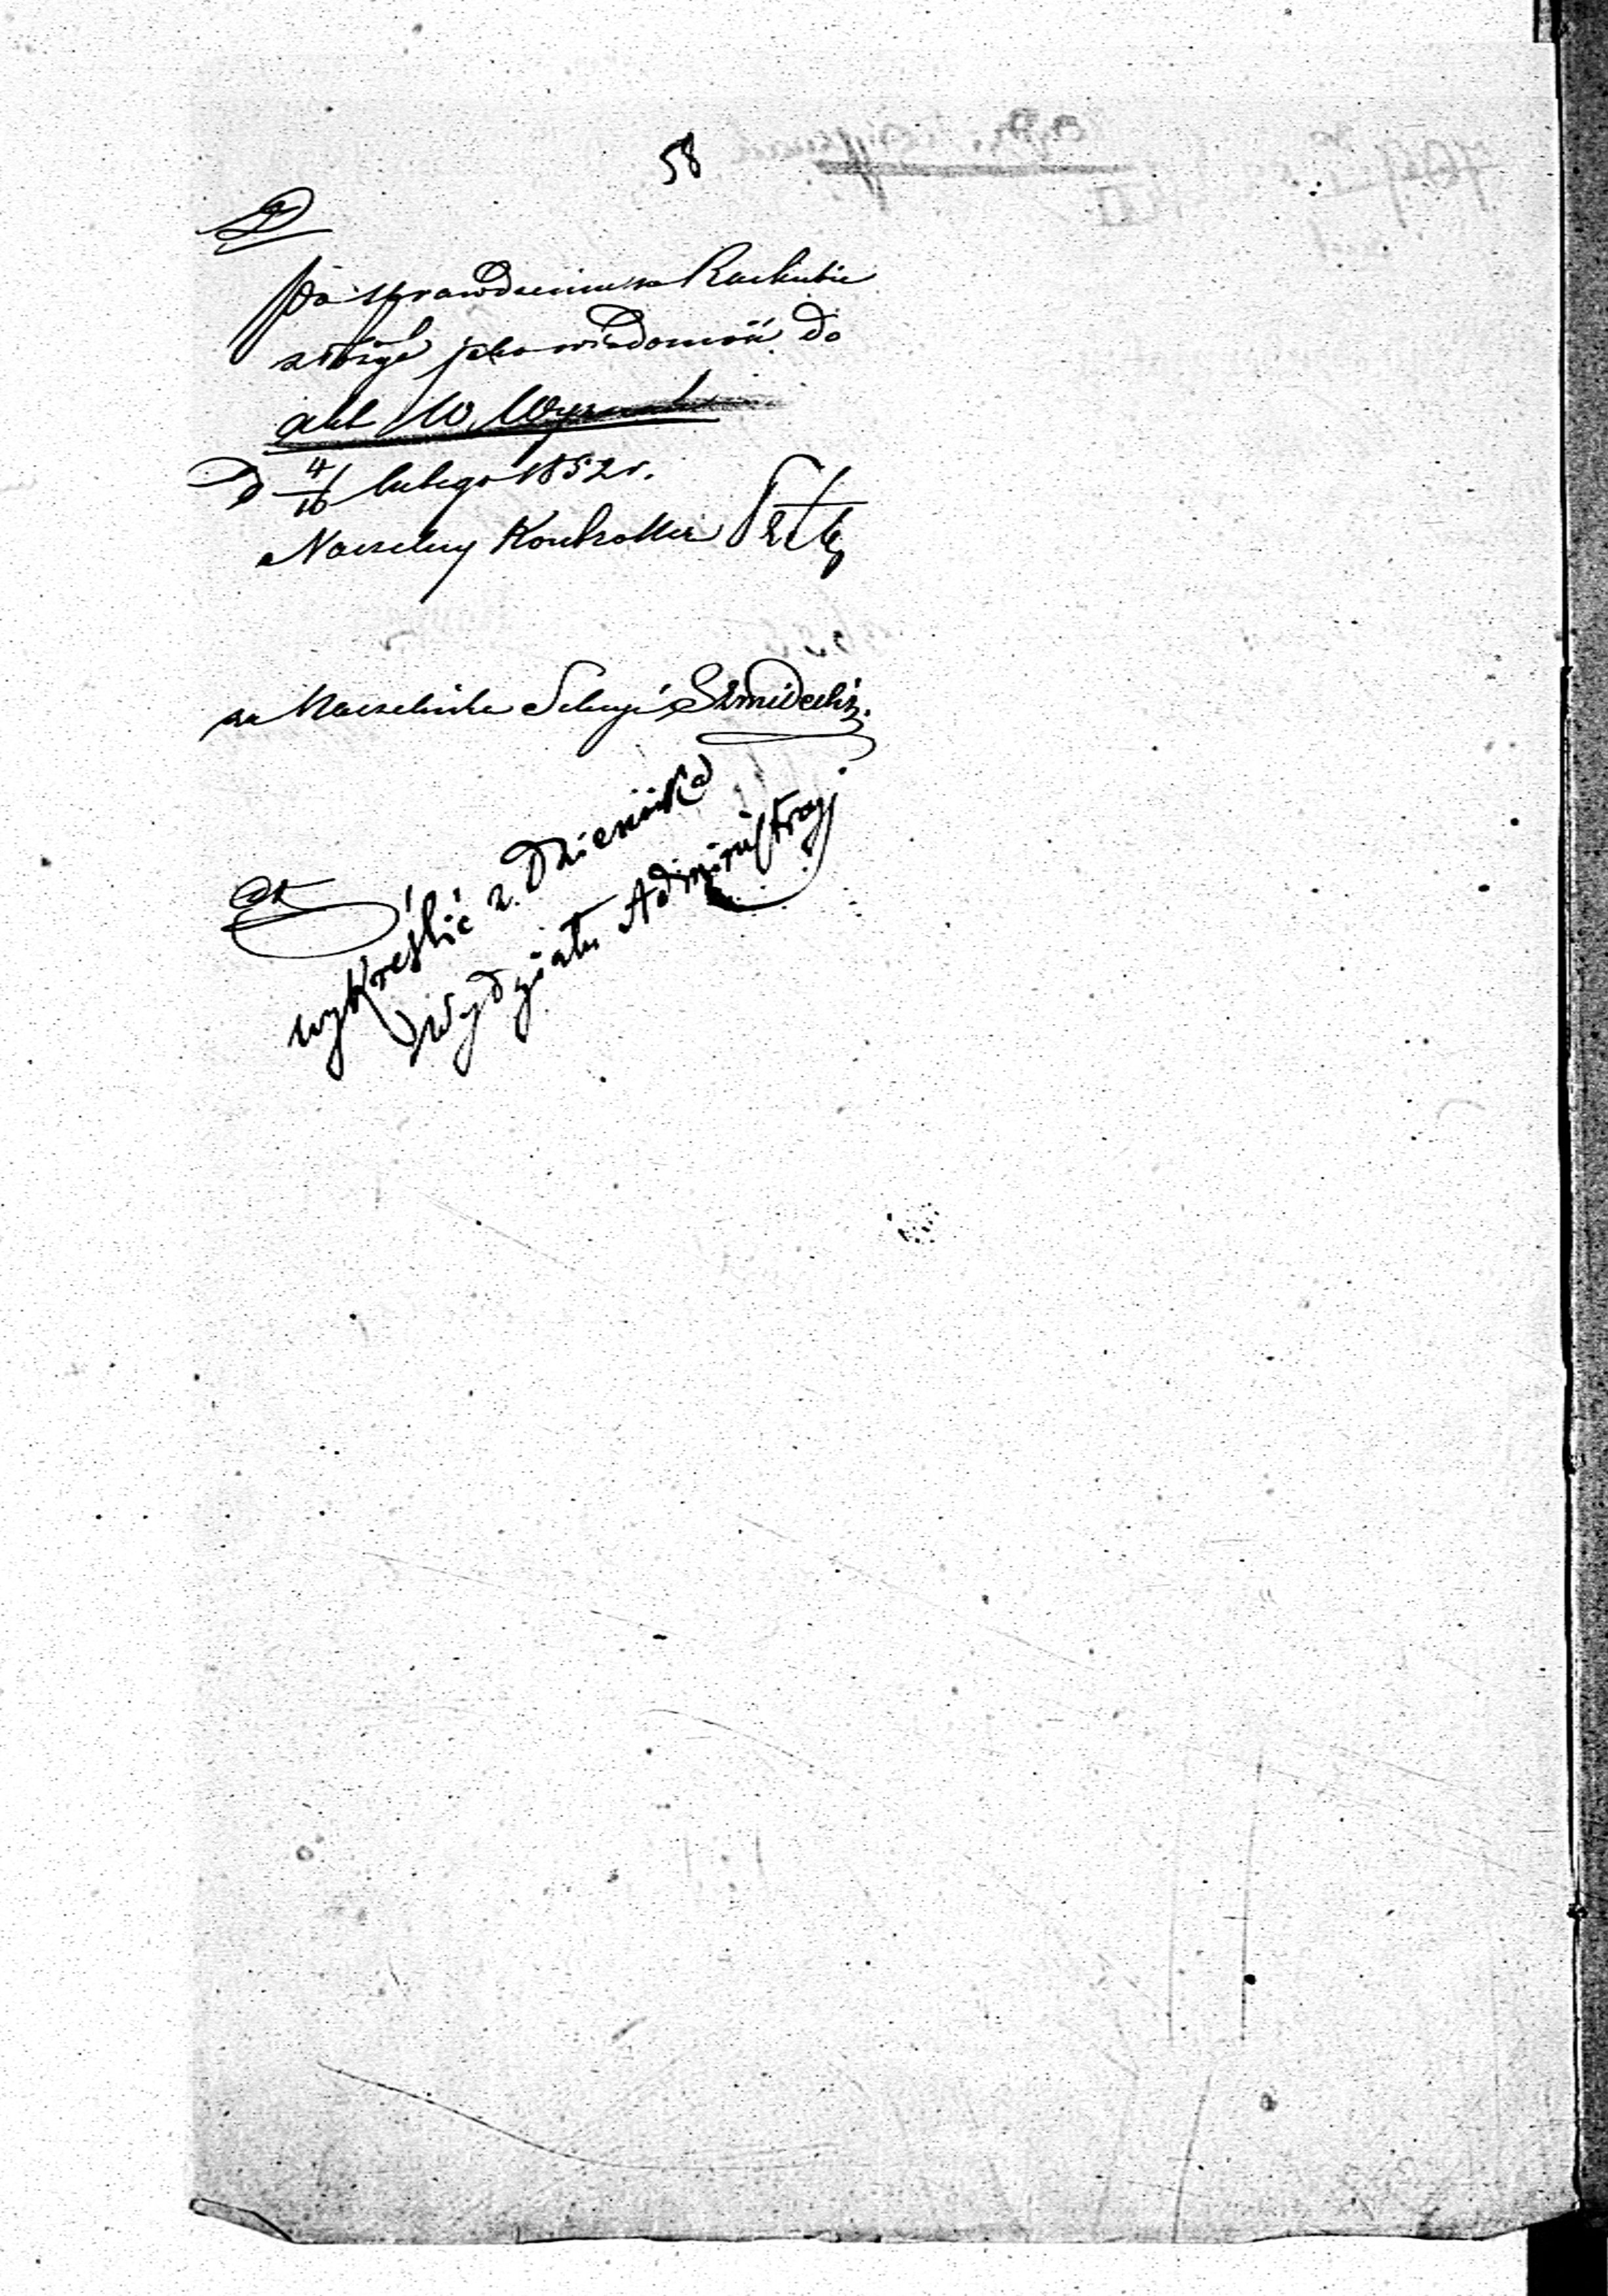 58
Po sprawdzeniu na Rachubie
złożyć jako wiadomość do
akt W.
D 4/16 lutego 1852 r.
Naczelny Kontroller
za Naczelnika Sekcyi Szmidecki.
wykreślić z Dziennika
Wydziału Administracyj